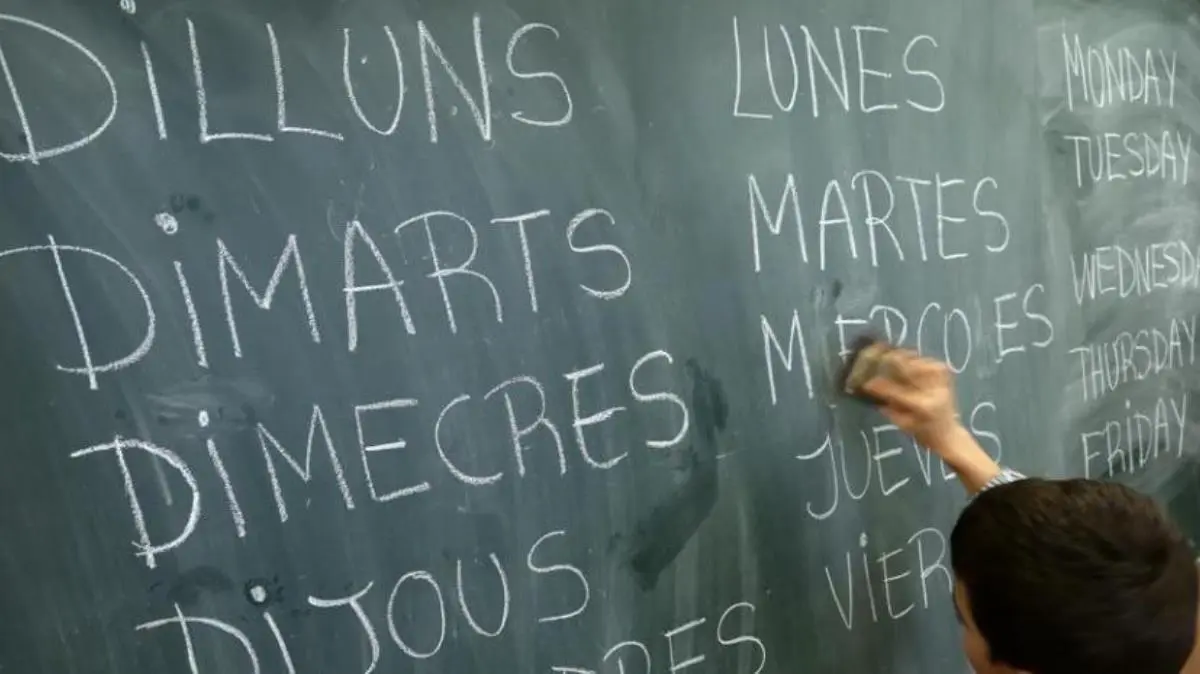 DiLLUNS
DiMARTS
DiMECRES
DiJOUS
LUNES
MARTES
MIERCOLES
JUEVES
MONDAY
TUESDAY
THURSDAY
FRiDAY